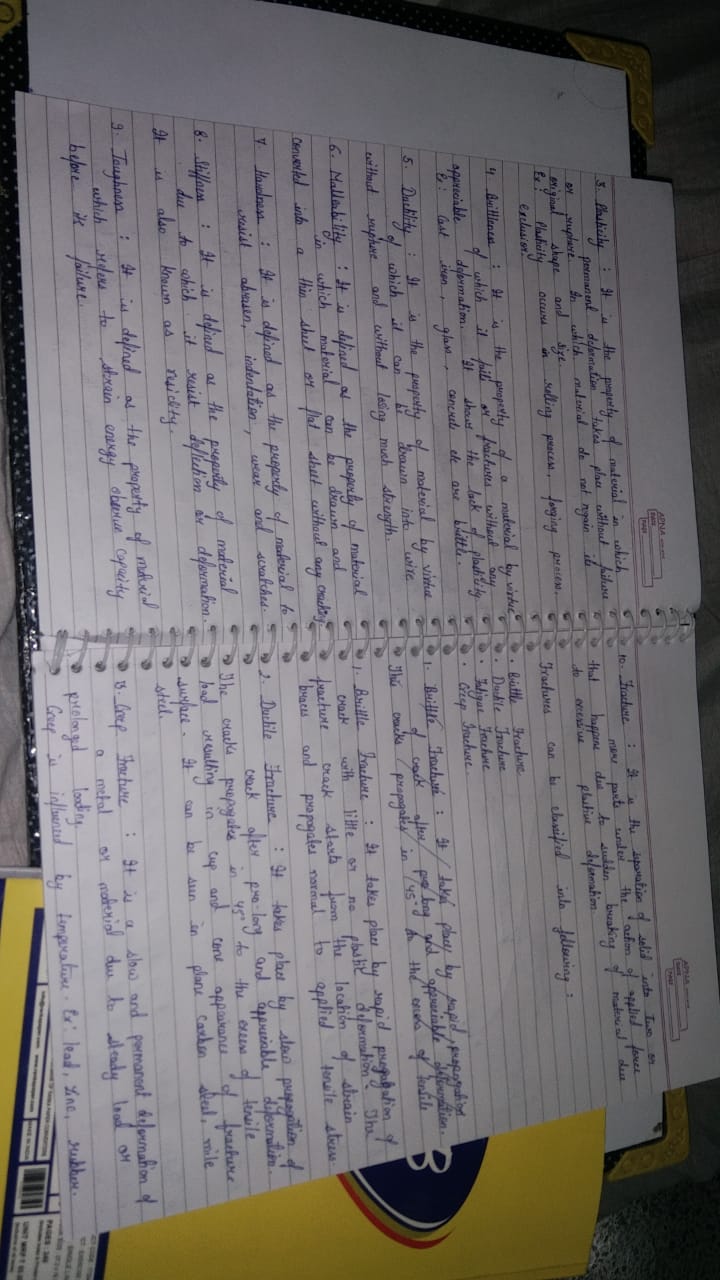 3. Plasticity : It is the property of material in which
permanent deformation takes place without failure
or rupture. In which material do not regain its
original shape and size.
Ex: Plasticity occurs in rolling process, forging process,
exclusion.
4. Brittleness : It is the property of a material by virtue
of which it fails or fractures without any
appreciable deformation. It shows the lack of plasticity.
Ex: Cast iron, glass, concrete etc are brittle.
5. Ductility : It is the property of material by virtue
of which it can be drawn into wire
without rupture and without losing much strength.
6. Malleability : It is defined as the property of material
in which material can be drawn and
converted into a thin sheet or flat sheet without any cracking
7. Hardness : It is defined as the property of material to
resist abrasen, indentation, wear and scratches.
8. Stiffness : It is defined as the property of material
due to which it resist deflection or deformation.
It is also known as resicity.
9. Toughness : It is defined as the property of material
which refers to strain energy absorve capacity
before its failure.
10. Fracture : It is the separation of solid into two or
more parts under the action of applied force
that happens due to sudden breaking of material due
to excessive plastive deformation
Fractures can be classified into following :
• Brittle Fracture
• Ductile Fracture
• Fatigue Fracture
• Creep Fracture
1. Brittle Fracture : It take place by rapid propogation
of crack after pro long and appreciable deformation.
This cracks propogates in 45° to the excess of tensile
1. Brittle Fracture : It takes place by rapid propagation of
crack with little or no plastic deformation. The
fracture crack starts from the location of strain
braces and propogates normal to applied tensile stress
2. Ductile Fracture : It takes place by slow propogation of
crack after pro-long and appreciable deformation.
The cracks propogates in 45° to the excess of tensile
load resulting in cup and cone appearance of fracture
surface. It can be seen in plane carbon steel, mile
steel
3. Creep Fracture : It is a slow and permanent deformation of
a metal or material due to steady load or
prolonged loading
Creep is influenced by temperature. Ex: lead, zinc, rubber.
PAGES : 240